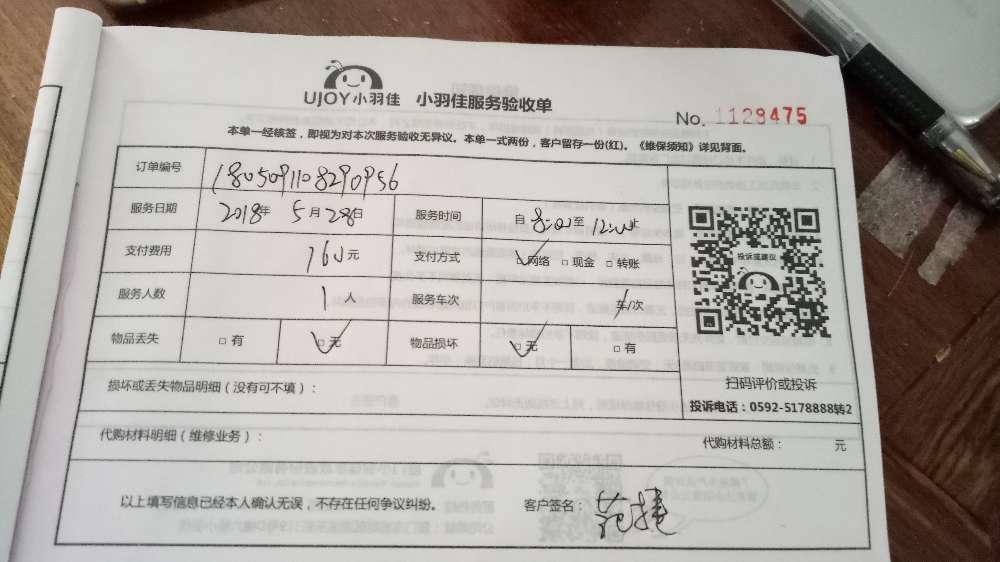 UJOY小羽佳 小羽佳服务验收单
No. 1128475
本单一经核签，即视为对本次服务验收无异议。本单一式两份，客户留存一份(红)。《维保须知》详见背面。
订单编号 1805091108290956
服务日期 2018年 5月 28日 服务时间 自 8:00至 12:00止
支付费用 160元 支付方式 □网络 □现金 □转账
服务人数 1人 服务车次 / 车/次
物品丢失 □有 □无 物品损坏 □无 □有
投诉或建议
扫码评价或投诉
投诉电话：0592-5178888转2
损坏或丢失物品明细（没有可不填）：
代购材料明细（维修业务）： 代购材料总额： 元
以上填写信息已经本人确认无误，不存在任何争议纠纷。 客户签名： 范捷